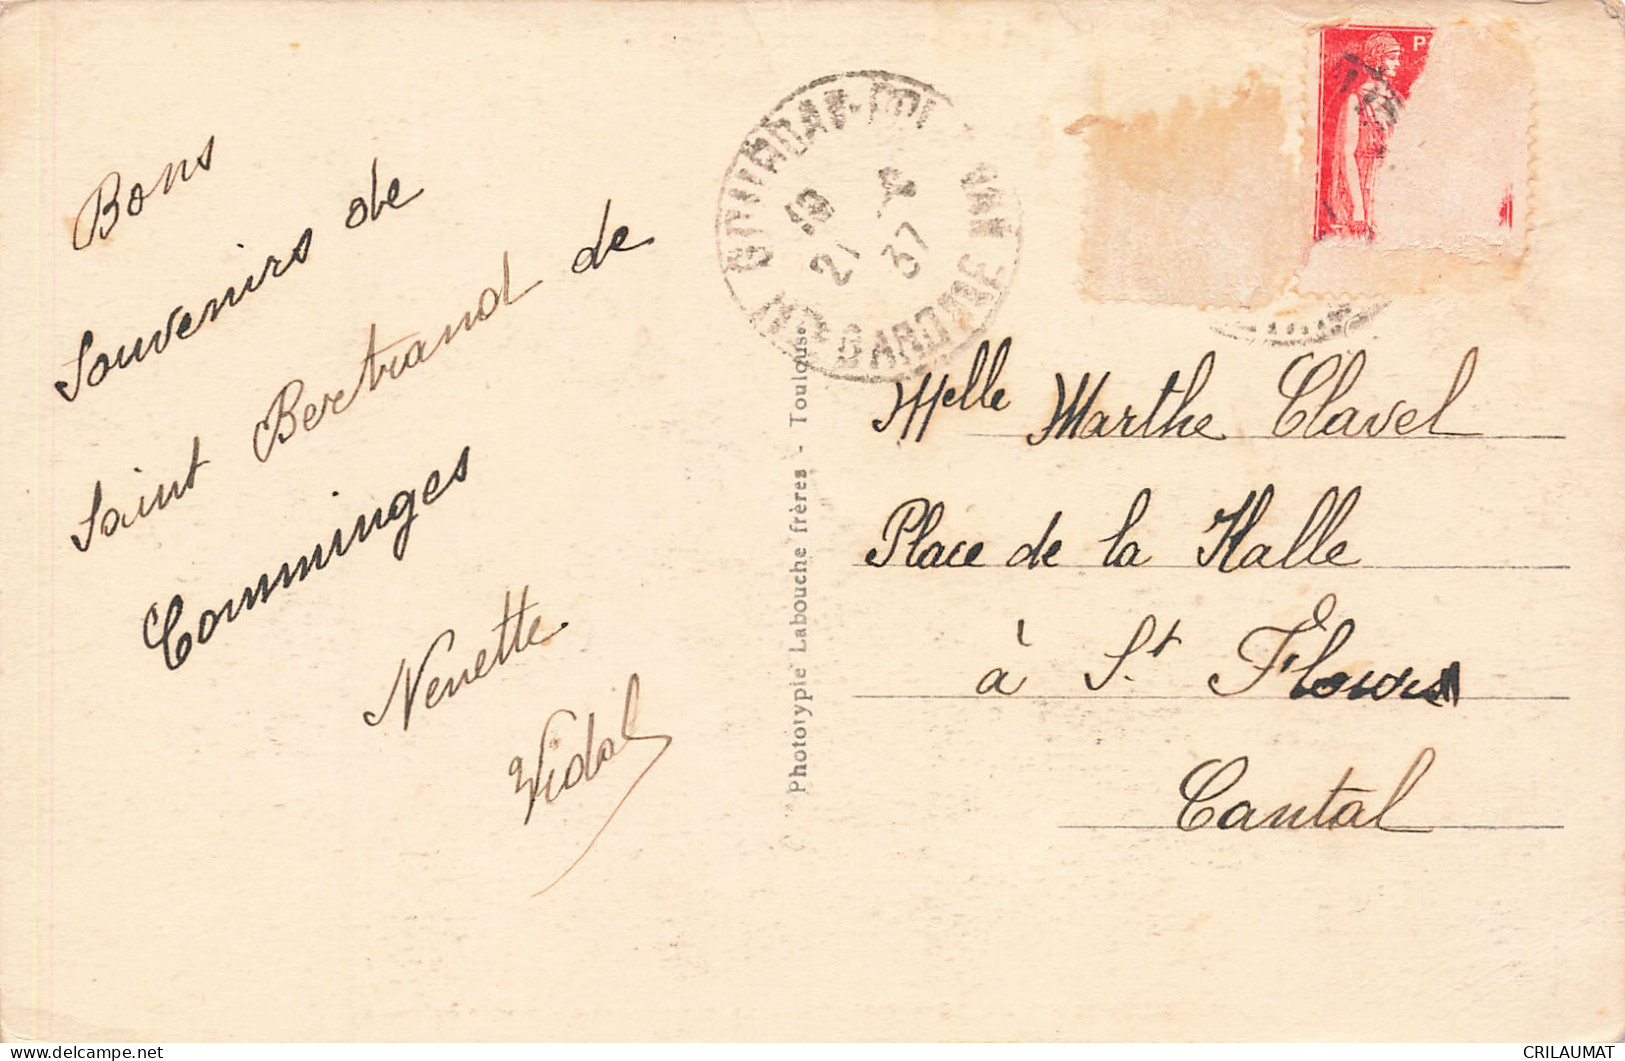 Bons
Souvenirs de
Saint Bertrand de
Comminges
Nenette
Vidal
Phototypie Labouche frères - Toulouse
18
21 -4
37
GARONNE
P
Melle Marthe Clavel
Place de la Halle
à St Flour
Cantal
CRILAUMAT